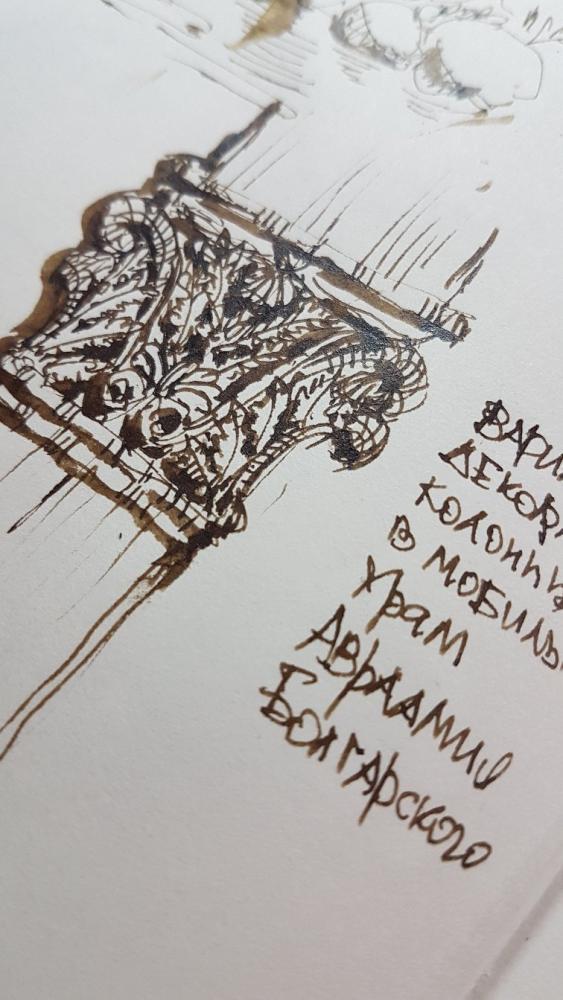 ВАРИ
ДЕКОР
КОЛОНН
В МОБИЛЬ
Храм
АВРААМИЯ
БОЛГАРСКОГО